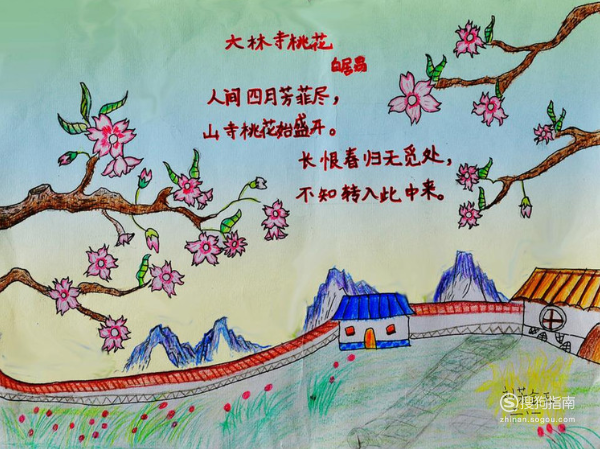 大林寺桃花
白居易
人间四月芳菲尽，
山寺桃花始盛开。
长恨春归无觅处，
不知转入此中来。
搜狗指南
zhinan.sogou.com